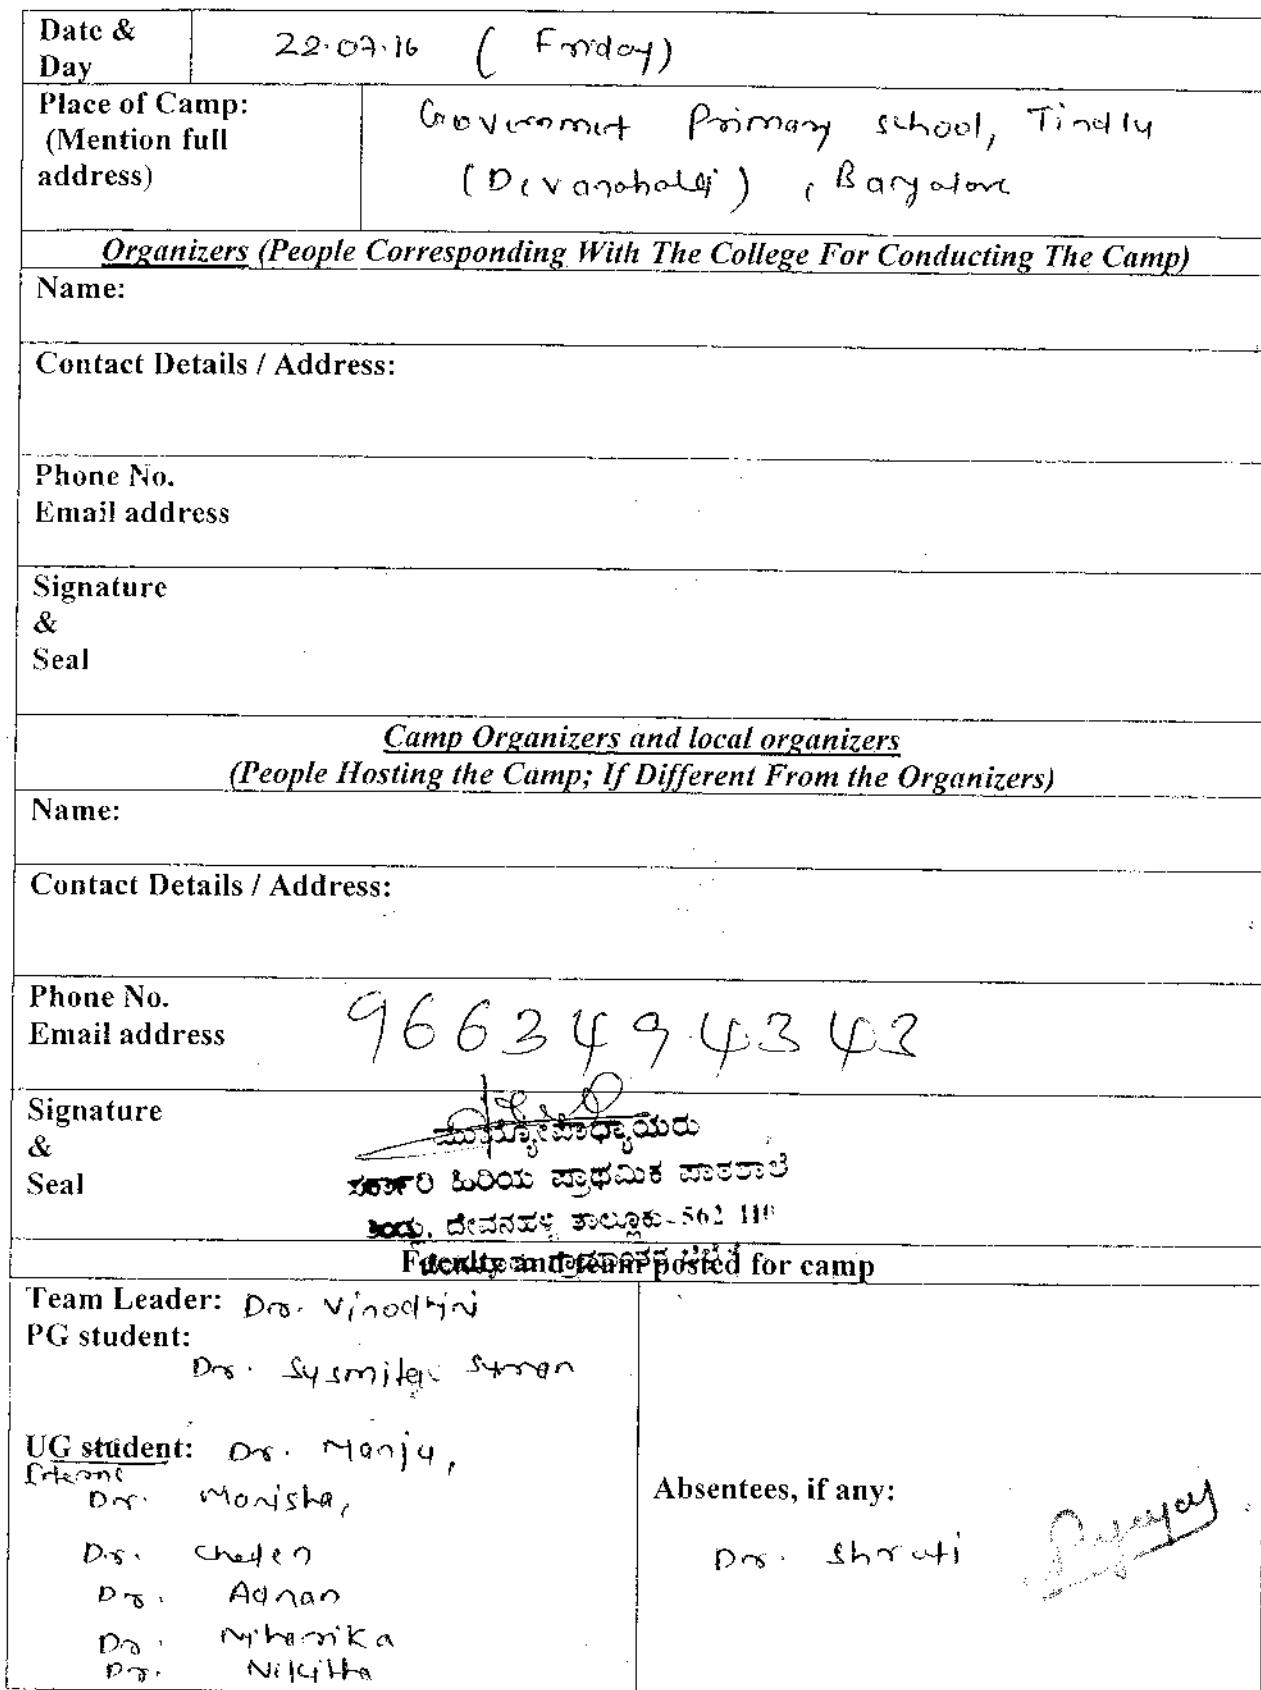 Date &
Day
22.07.16 ( Friday)
Place of Camp:
(Mention full
address)
Government Primary school, Tindlu
(Devanahalli) , Bangalore
Organizers (People Corresponding With The College For Conducting The Camp)
Name:
Contact Details / Address:
Phone No.
Email address
Signature
&
Seal
Camp Organizers and local organizers
(People Hosting the Camp; If Different From the Organizers)
Name:
Contact Details / Address:
Phone No.
Email address
9663494343
Signature
&
Seal
ಮುಖ್ಯೋಪಾಧ್ಯಾಯರು
ಸರ್ಕಾರಿ ಹಿರಿಯ ಪ್ರಾಥಮಿಕ ಪಾಠಶಾಲೆ
ದೇವನಹಳ್ಳಿ ತಾಲ್ಲೂಕು-562 110
Faculty and team posted for camp
Team Leader: Dr. Vinodhini
PG student:
Dr. Susmita Suman
UG student: Dr. Manju,
Interns
Dr. Monisha,
Dr. Cheten
Dr. Adnan
Dr. Niharika
Dr. Nikitha
Absentees, if any:
Dr. Shruti